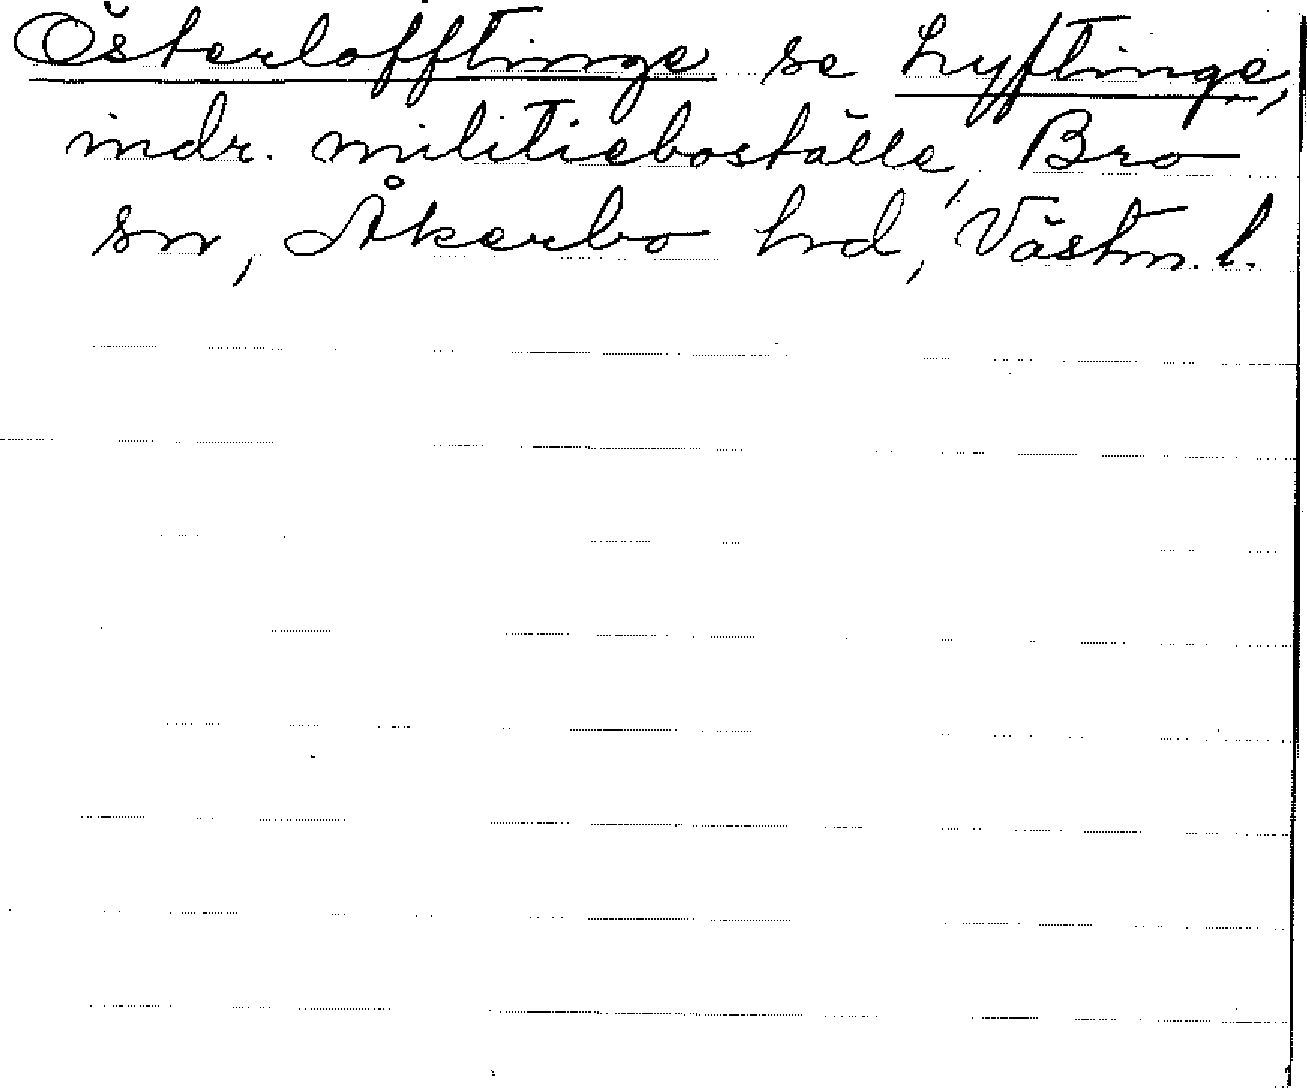 Österlofftinge se Lyftinge,
indr. militieboställe, Bro
sn, Åkerbo hd, Västm. l.